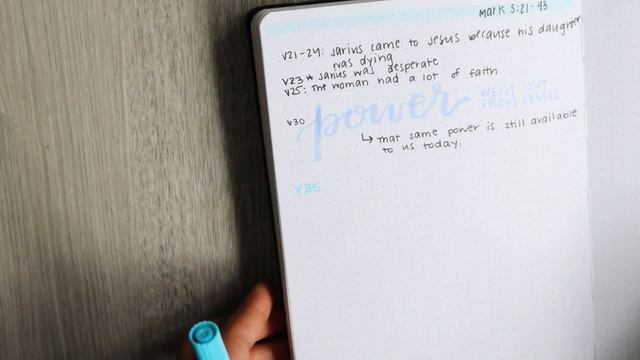 Mark 5:21-43
V21-24: Jarius came to Jesus because his daughter
was dying
V23 * Jarius was desperate
V25: The woman had a lot of faith
V30 power WENT OUT
FROM JESUS
↳ That same power is still available
to us today.
V35